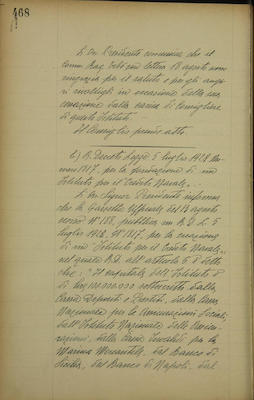 468
L'On. Presidente comunica che il
Comm. Rag. con lettera 18 agosto
ringrazia per il saluto e per gli augu-
ri rivoltigli in occasione della sua
dalla carica di Consigliere
di questo Istituto.
Il Consiglio prende atto.
b) R. Decreto Legge 5 luglio 1928 nu-
mero 1817, per la fondazione di un
Istituto per il Credito Navale.
L'On. Signor Presidente informa
che la Gazzetta Ufficiale del agosto
N° 188, pubblica un R.D.L. 5
luglio 1928, N° 1817, per la creazione
di un Istituto per il Credito Navale,
nel quale R.D. all'articolo è detto
che: "Il capitale dell'Istituto è
di lire 100.000.000 sottoscritto dalla
Cassa Depositi e Prestiti, dalla Cassa
Nazionale per le Assicurazioni Sociali,
dall'Istituto Nazionale delle Assicu-
razioni, dalla Cassa Invalidi per la
Marina Mercantile, dal Banco di
Sicilia, dal Banco di Napoli, dal